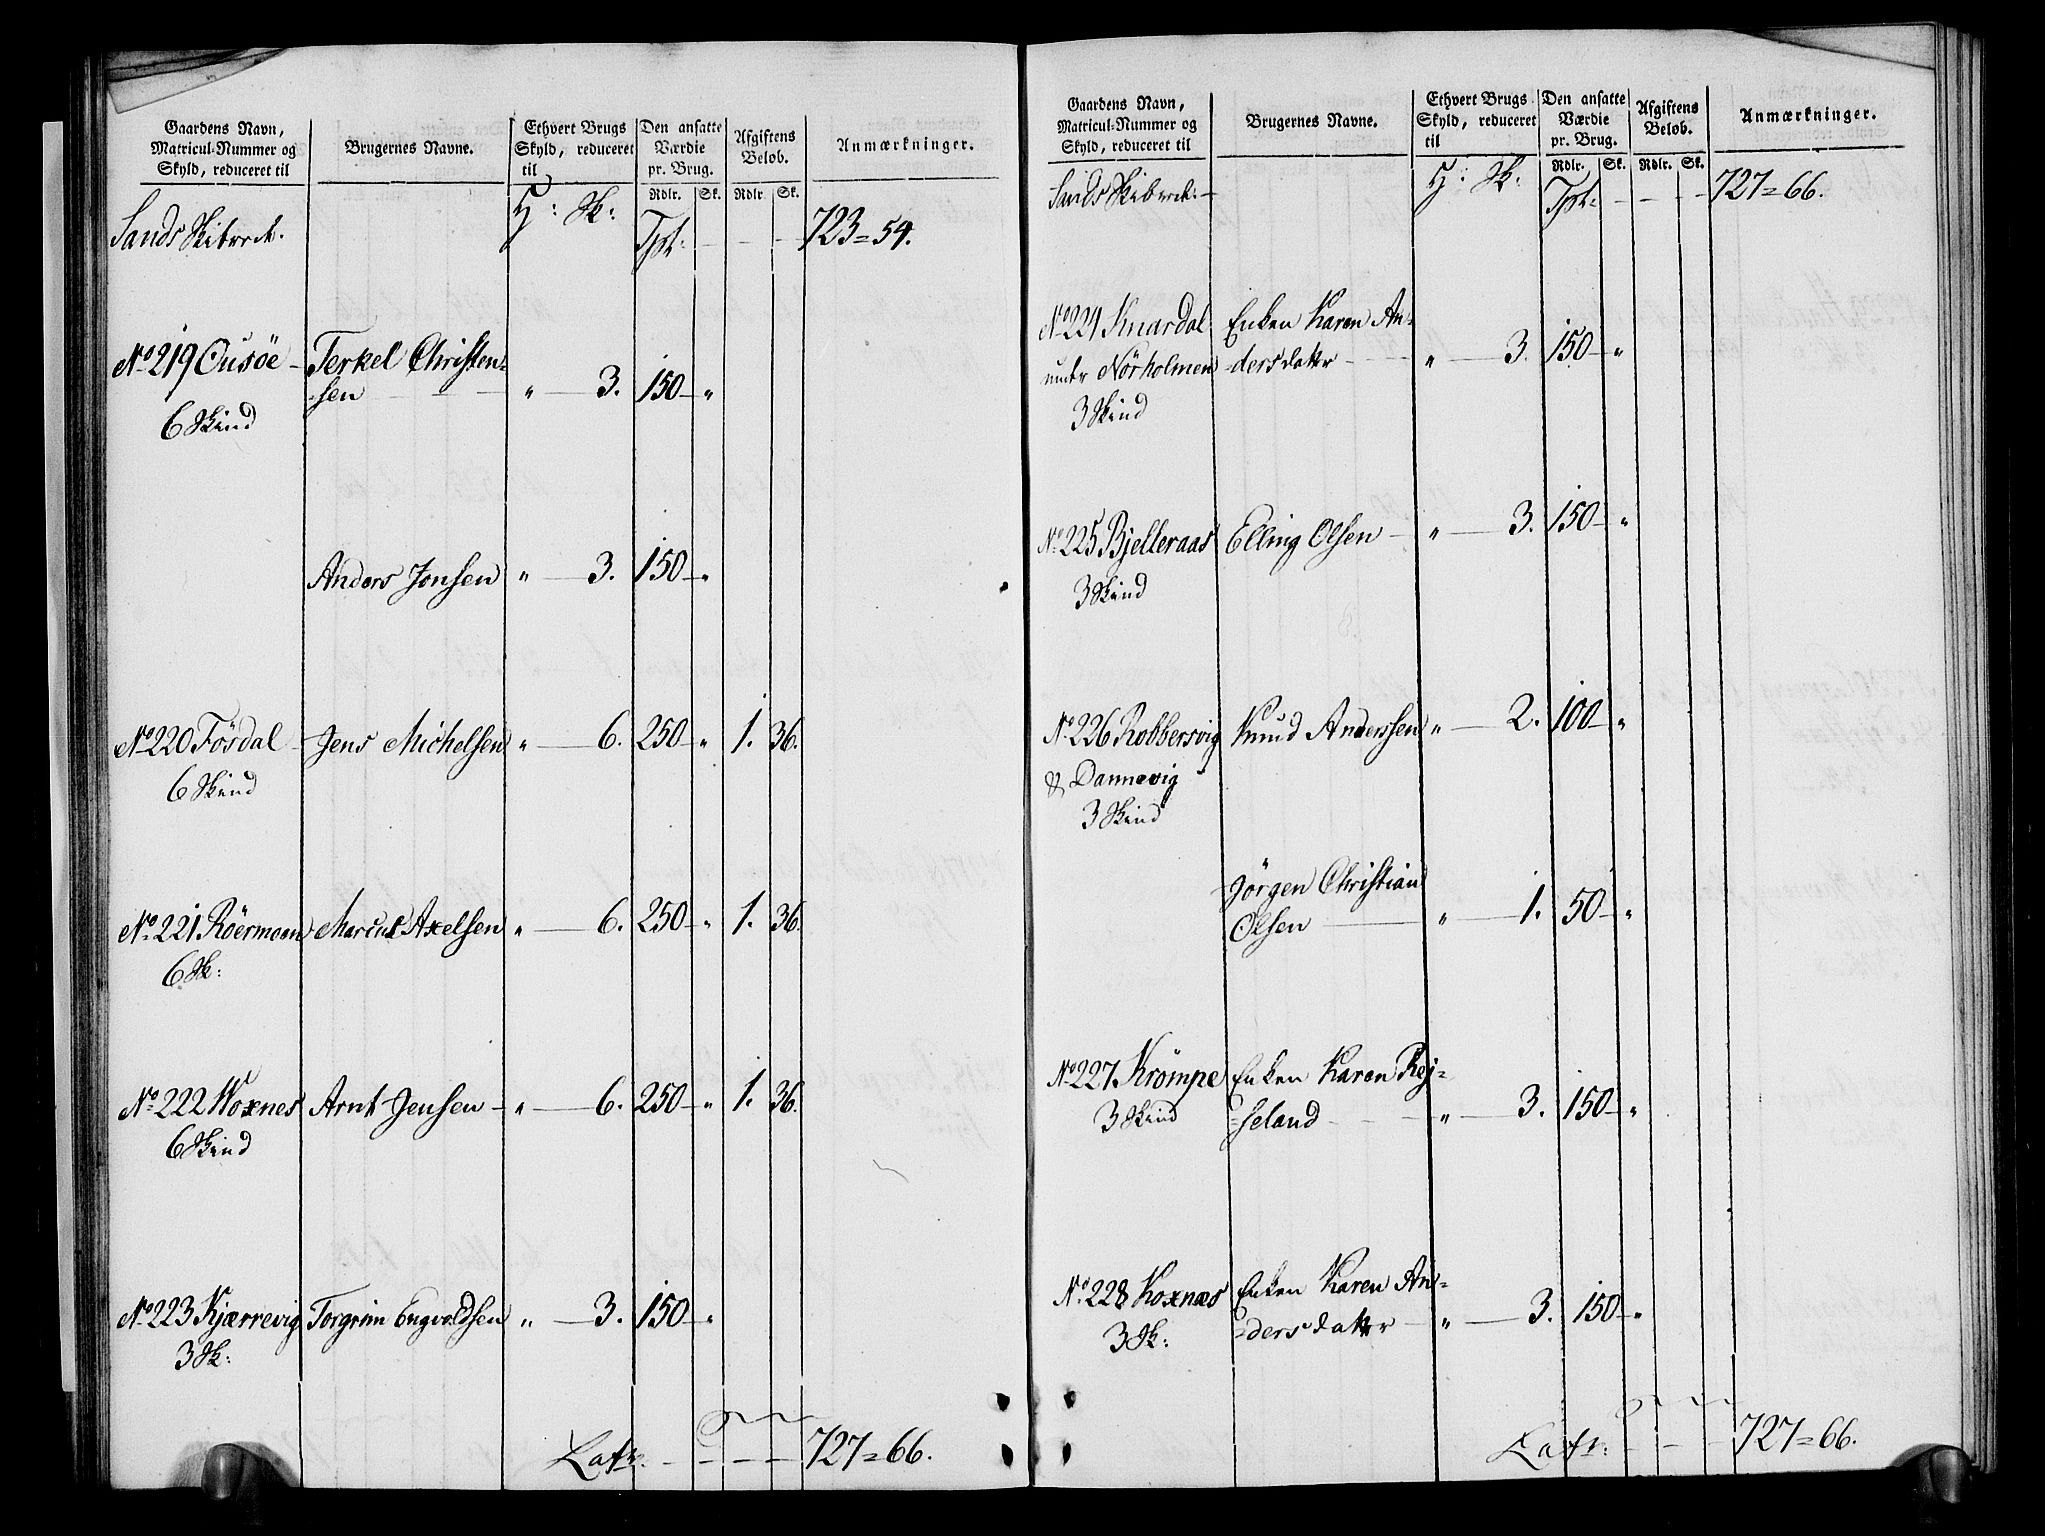 Gaardens Navn, Matricul-Nummer og Skyld, reduceret til | Brugernes Navne. | Ethvert Brugs Skyld, reduceret til | Den ansatte Værdie pr. Brug. | Afgiftens Beløb. | Anmærkninger.
Rdlr. Sk. Rdlr Sk.
H: Sk:
Sands Skibrede. Tpt: - - - 723=54.
No 219 Ousöe - Terkel Christen=
=sen - - - " - 3. 150 - "
6 Skind
Anders Jonsen " - 3. 150 - "
No 220 Fösdal - Jens Michelsen " - 6. 250 - " 1. 36.
6 Skind
No 221 Röermoen Marcus Axelsen " - 6. 250 - " 1. 36.
6 Sk:
No 222 Woxnes Arnt Jensen - " - 6. 250 - " 1. 36.
6 Skind
No 223 Kjærrevig Torgrim Engvoldsen " - 3. 150 - "
3 Sk:
Latr: - - - - 727=66.
Gaardens Navn, Matricul-Nummer og Skyld, reduceret til | Brugernes Navne. | Ethvert Brugs Skyld, reduceret til | Den ansatte Værdie pr. Brug. | Afgiftens Beløb. | Anmærkninger.
Rdlr. Sk. Rdlr. Sk.
H: Sk:
Sands Skibrede: - Tpt: - - - - 727=66.
No 224 Knardal Enken Karen An=
under Nörholmen =dersdatter - - " - 3. 150 - "
3 Skind
No 225 Bjelleraas Elling Olsen - " - 3. 150 - "
3 Skind
No 226 Robbersvig Knud Anderssen " - 2. 100 - "
& Dannevig
3 Skind
Jörgen Christian
Olsen - " - 1. 50 - "
No 227 Krömpe Enken Karen Rej=
3 Skind =seland - - - " - 3. 150 - "
No 228 Koxnæs Enken Karen An=
=dersdatter - " - 3. 150 - "
3 Sk:
Latr: - - - 727=66.